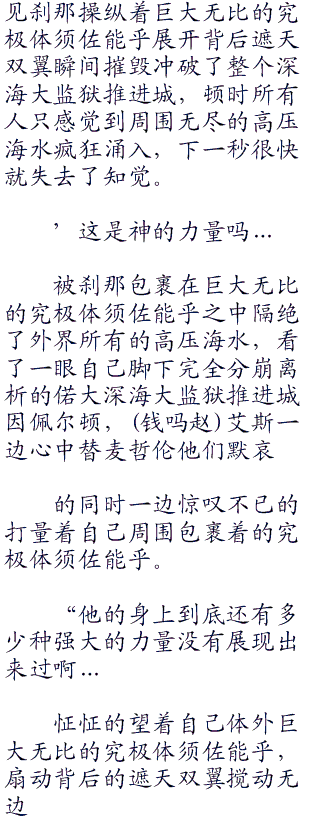 见刹那操纵着巨大无比的究
极体须佐能乎展开背后遮天
双翼瞬间摧毁冲破了整个深
海大监狱推进城，顿时所有
人只感觉到周围无尽的高压
海水疯狂涌入，下一秒很快
就失去了知觉。
’这是神的力量吗...
被刹那包裹在巨大无比
的究极体须佐能乎之中隔绝
了外界所有的高压海水，看
了一眼自己脚下完全分崩离
析的偌大深海大监狱推进城
因佩尔顿，(钱吗赵)艾斯一
边心中替麦哲伦他们默哀
的同时一边惊叹不已的
打量着自己周围包裹着的究
极体须佐能乎。
“他的身上到底还有多
少种强大的力量没有展现出
来过啊...
怔怔的望着自己体外巨
大无比的究极体须佐能乎，
扇动背后的遮天双翼搅动无
边